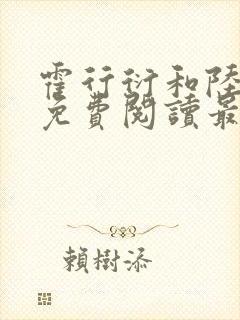 霍行衍和陸
免費閱讀最
賴樹添